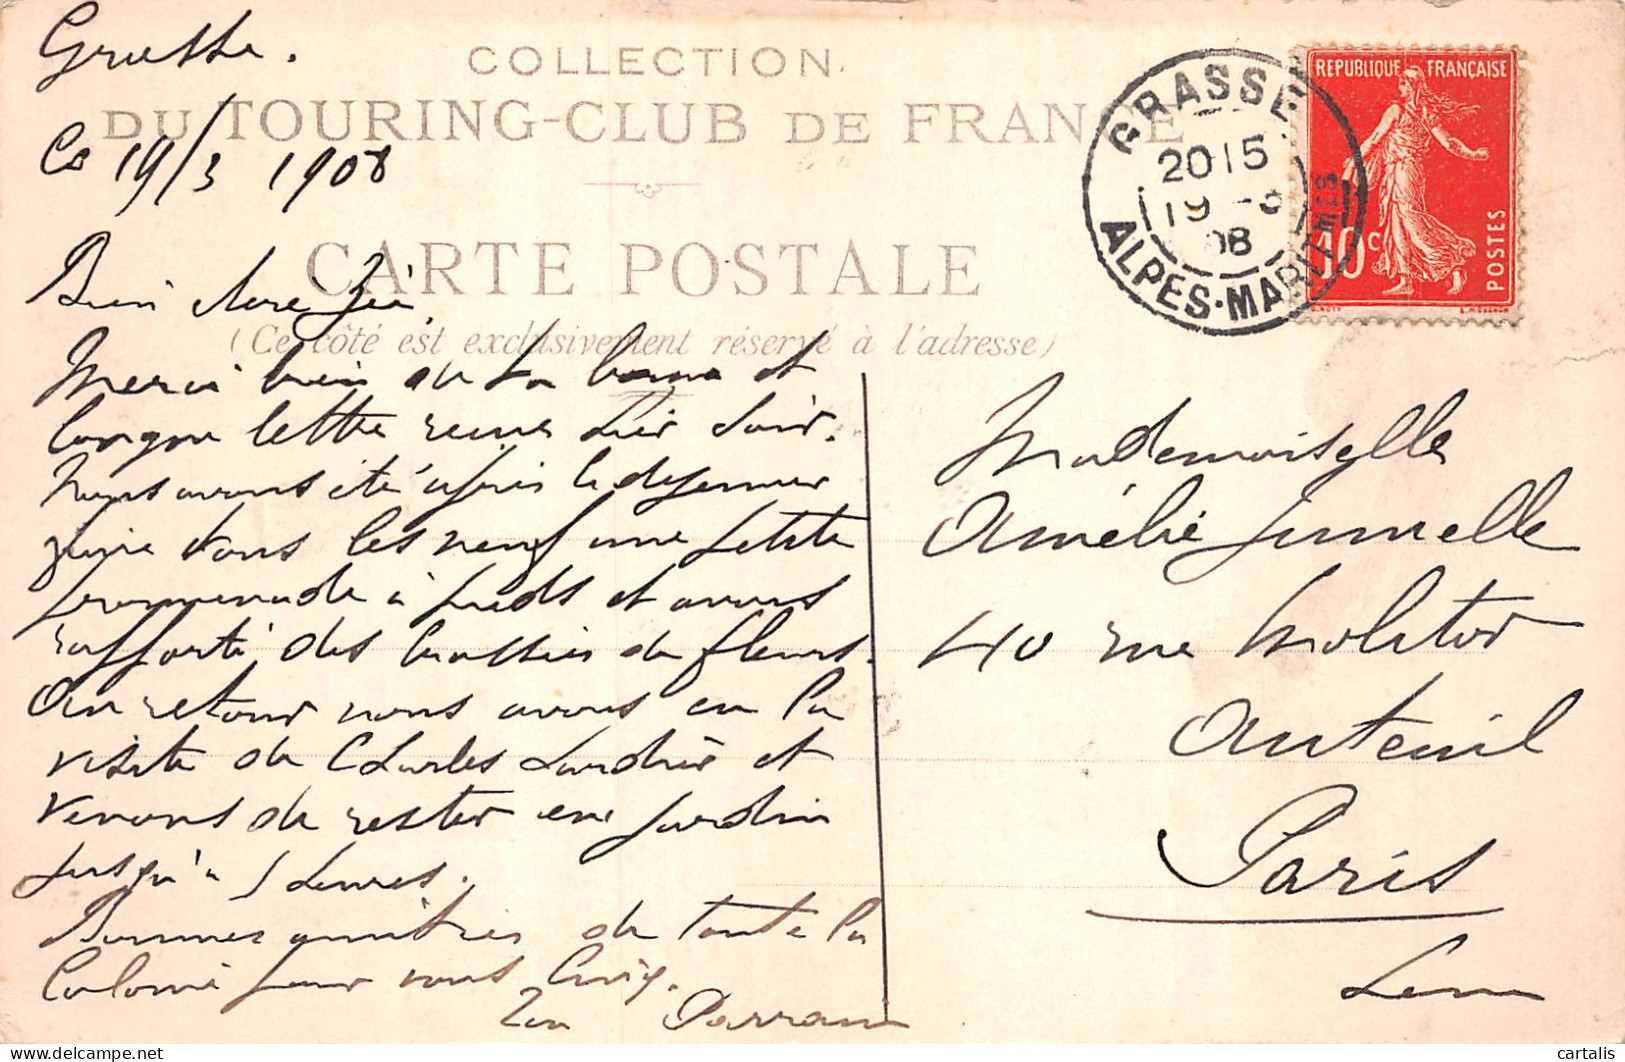 COLLECTION
DU TOURING-CLUB DE FRANCE
CARTE POSTALE
(Ce côté est exclusivement réservé à l'adresse)
GRASSE
20 15
19 -3
08
ALPES-MARITIMES
REPUBLIQUE FRANÇAISE
10 c
POSTES
O. ROTY
L. MOUCHON
Grasse.
Ce 19/3 1908
Bien chere
Merci bien de ta bonne et
longue lettre reçue hier soir.
Nous avons été après le dejeuner
faire tous les neuf une petite
promenade à pieds et avons
rapporté des brassées de fleurs.
Au retour nous avons eu la
visite de Charles et
venons de rester au jardin
jusqu'à 5 heures.
Bonnes amitiés de toute la
Colonie pour vous
Mademoiselle
Amélie Jumelle
40 rue Molitor
Auteuil
Paris
cartalis